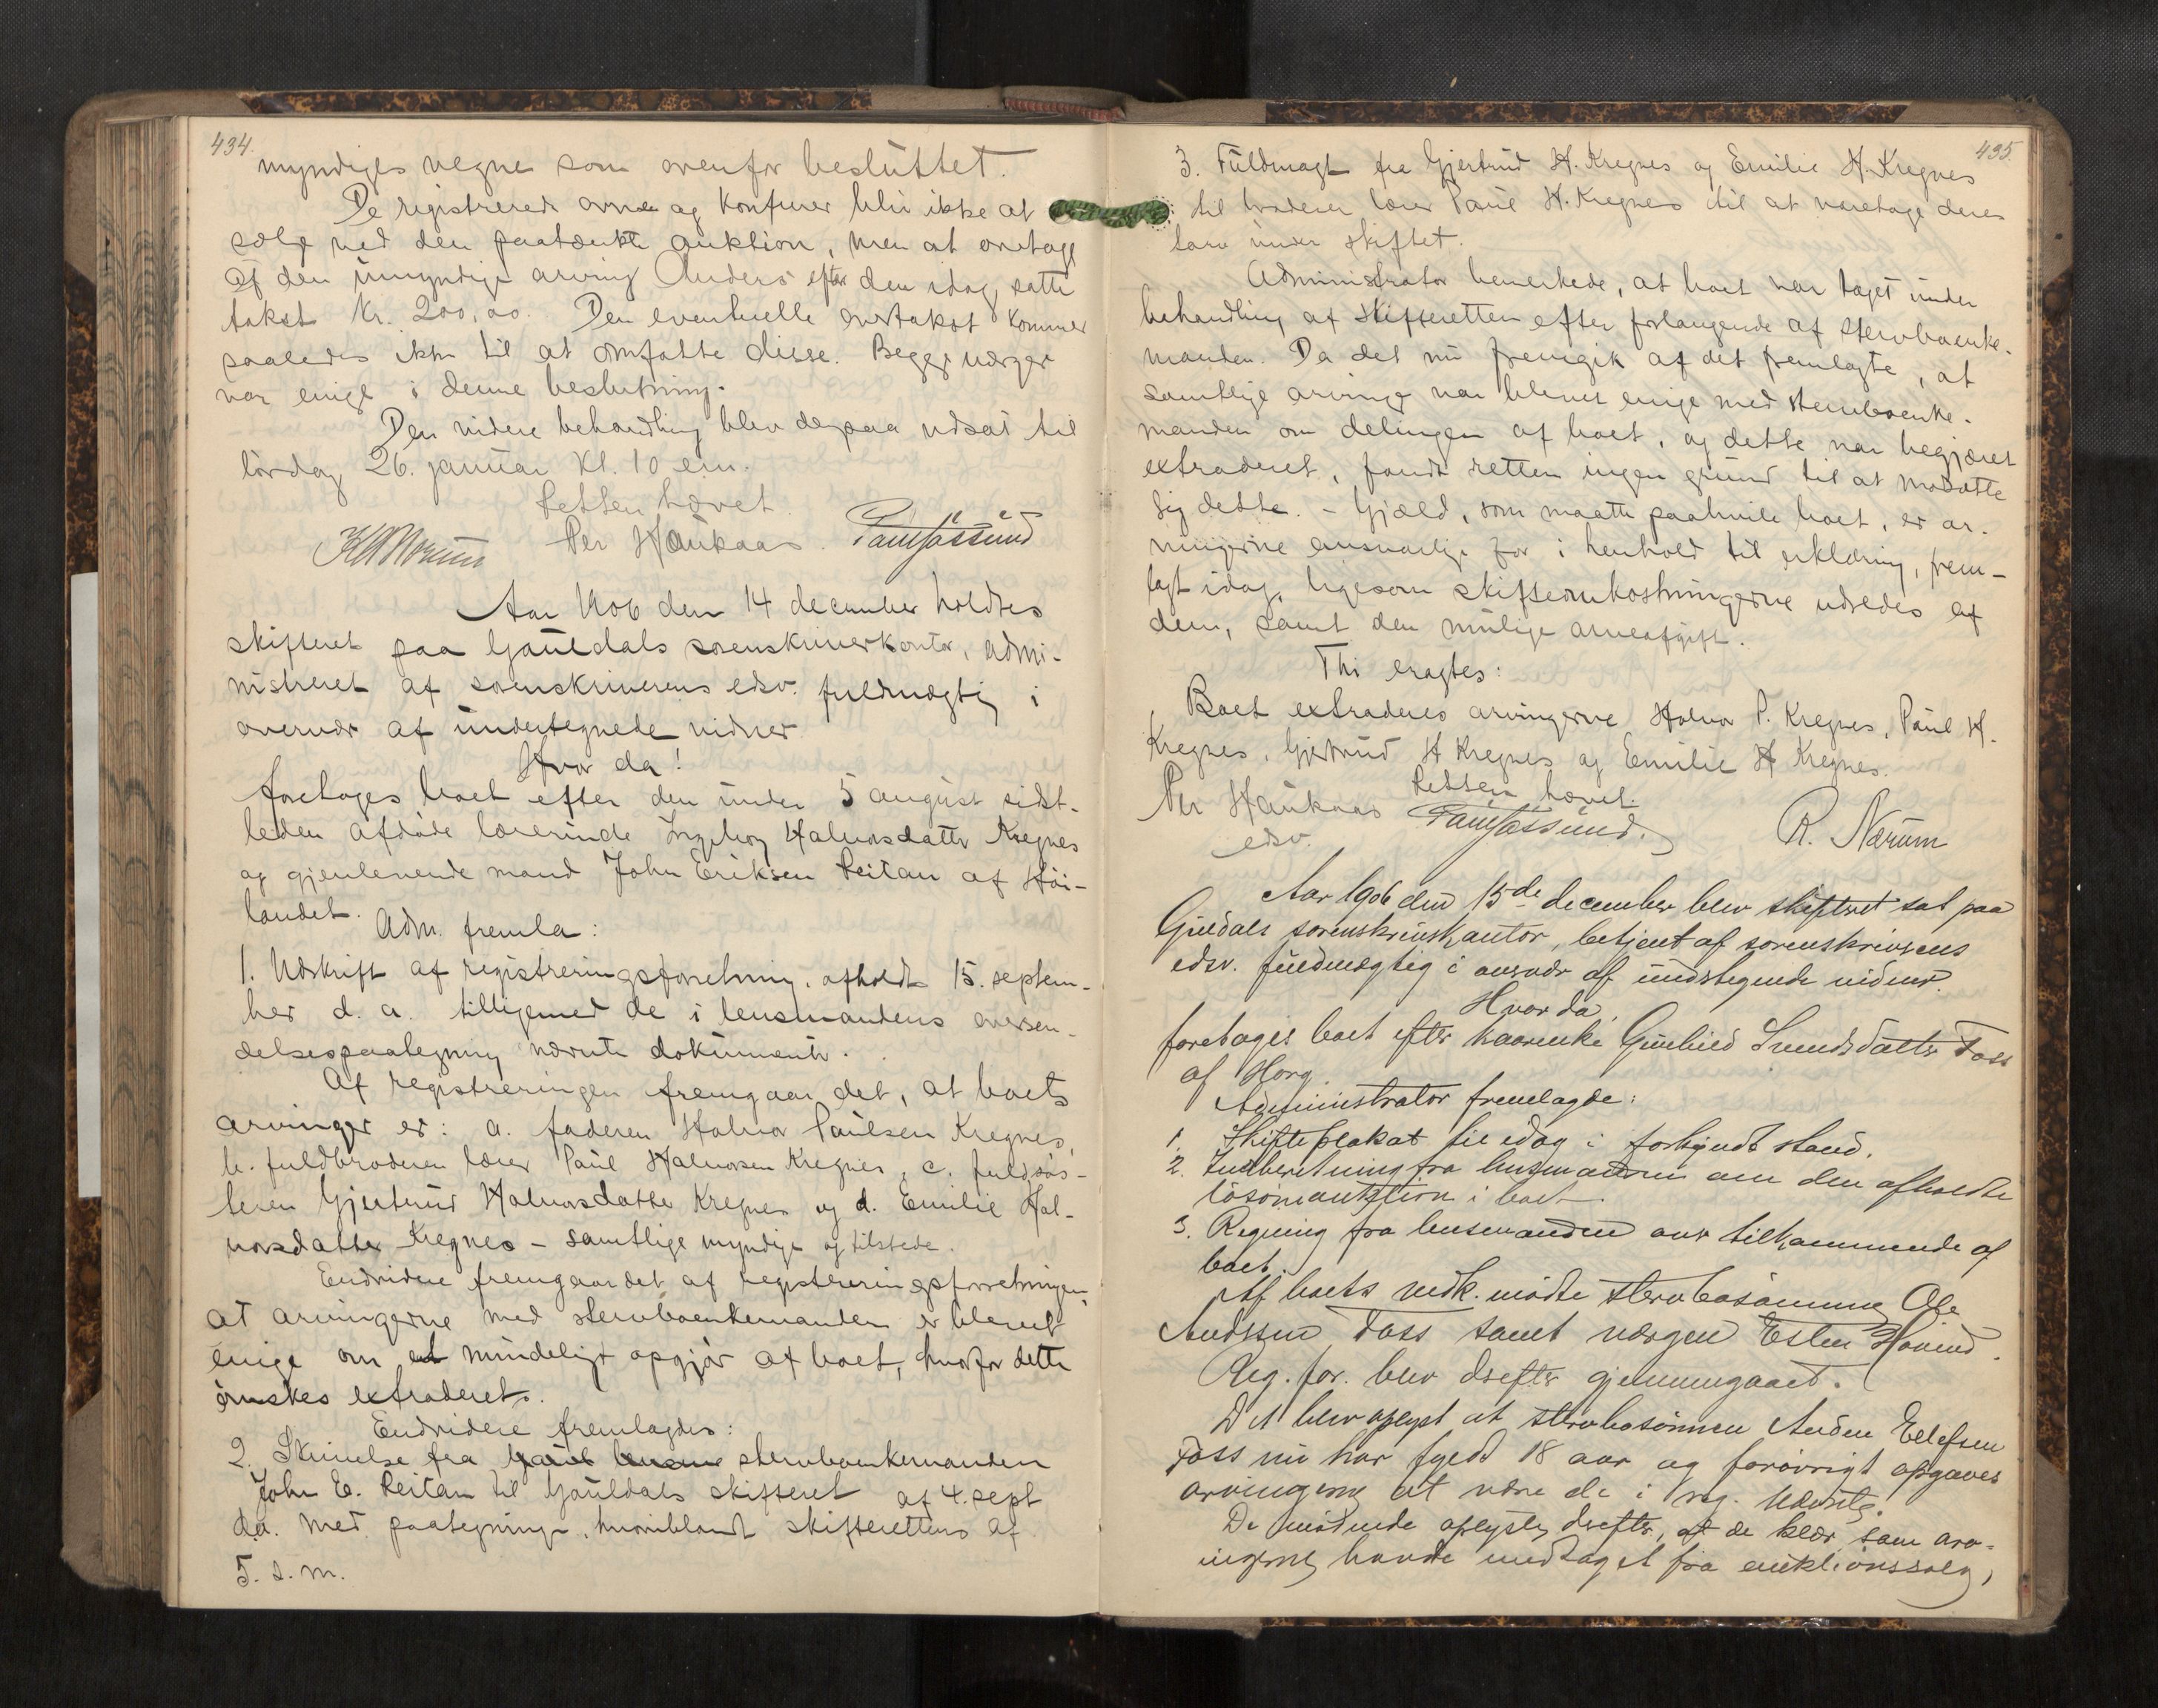 434.
myndiges vegne som ovenfor besluttet.
De registrerede ovne og komfurer blir ikke at
sælge ved den paatænkte auktion, men at overtage
af den umyndige arving Anders efter den idag satte
takst Kr. 200,00. Den eventuelle overtakst kommer
saaledes ikke til at omfatte disse. Begge værger
var enige i denne beslutning.
Den videre behandling blev derpaa udsat til
lördag 26. januar kl. 10 em.
Retten hævet.
Per Haukaas. Paul Fossund
Aar 1906 den 14 december holdtes
skifteret paa Gauldals sorenskriverkontor, admi-
nistreret af sorenskriverens edsv. fuldmægtig i
overvær af undertegnede vidner.
Hvor da!
foretoges boet efter den under 5 august sidst-
leden afdöde lærerinde Ingeborg Halvorsdatter Kregnes
og gjenlevende mand John Eriksen Reitan af Höi-
landet.
Adm. fremla:
1. Udskrift af registreringsforretning, afholdt 15. septem-
ber d. a. tilligemed de i lensmandens oversen-
delsespaategning nævnte dokumenter.
Af registreringen fremgaar det, at boets
arvinger er: a. faderen Halvor Paulsen Kregnes,
b. fuldbroderen lærer Paul Halvorsen Kregnes, c. fuldsös-
teren Gjertrud Halvorsdatter Kregnes og d. Emilie Hal-
vorsdatter Kregnes - samtlige myndige og tilstede.
Endvidere fremgaar det af registreringsforretningen,
at arvingerne med stervboenkemanden er blevet
enige om et mindeligt opgjör af boet, hvorfor dette
önskes extraderet.
Endvidere fremlagdes:
2. Skrivelse fra stervboenkemanden
John E. Reitan til Gauldals skifteret af 4. sept
d.a. med paategninger, hvoriblandt skifterettens af
5. s. m.
435.
3. Fuldmagt fra Gjertrud H. Kregnes og Emilie H. Kregnes
til broderen lærer Paul H. Kregnes til at varetage deres
tarv under skiftet.
Administrator bemerkede, at boet var taget under
behandling af skifteretten efter forlangende af stervboenke-
manden. Da det nu fremgik af det fremlagte, at
samtlige arvinger var blevet enige med stervboenke-
manden om delingen af boet, og dette var begjæret
extraderet, fandt retten ingen grund til at modsætte
sig dette. - Gjæld, som maatte paahvile boet, er ar-
vingerne ansvarlige for i henhold til erklæring, frem-
lagt idag, ligesom skifteomkostningerne udredes af
dem, samt den mulige arveafgift.
Thi eragtes:
Boet extraderes arvingerne Halvor P. Kregnes, Paul H.
Kregnes, Gjertrud H Kregnes og Emilie H Kregnes.
Retten hævet.
Per Haukaas Paul Fossund. R. Nærum
edsv.
Aar 1906 den 15de december blev skifteret sat paa
Guldals sorenskriverkontor, betjent af sorenskriverens
edsv. fuldmægtig i overvær af undertegnede vidner.
Hvor da,
foretoges boet efter kaarenke Gunhild Svendsdatter Foss
af Horg.
Administrator fremlagde:
1. Skifteplakat til idag i forkyndt stand.
2. Indberetning fra lensmanden om den afholdte
lösöreauktion i boet.
3. Regning fra lensmanden over tilkommende af
boet.
Af boets vedk. mödte stervbosönnen Ole
Anderssen Foss samt værgen Esten Hovind.
Reg. for. blev derefter gjennemgaaet.
Det blev oplyst at stervbosönnen Anders Ellefsen
Foss nu har fyldt 18 aar og forövrigt opgaves
arvingerne at være de i reg. nævnte.
De mödende oplyste derefter, at de klær, som arv-
ingerne havde undtaget fra auktionssalg,